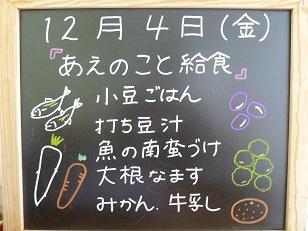 12月4日(金)
『あえのこと給食』
小豆ごはん
打ち豆汁
魚の南蛮づけ
大根なます
みかん.牛乳し